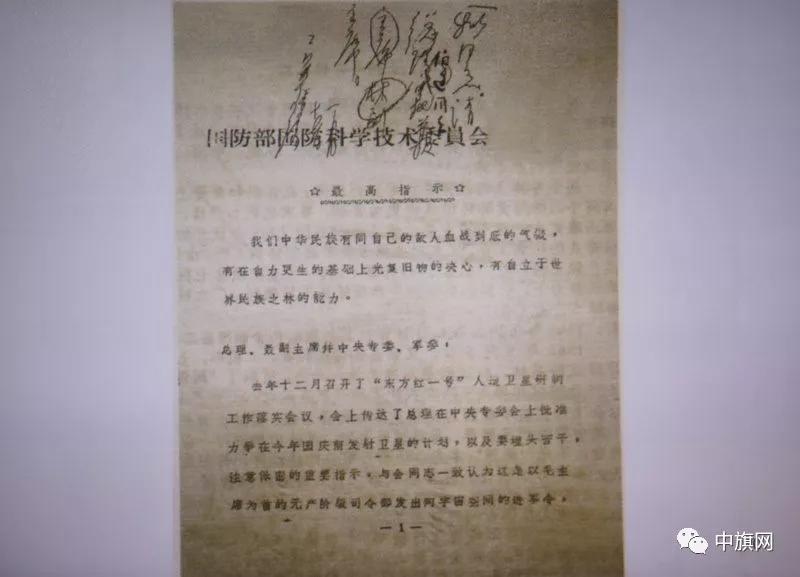 国防部国防科学技术委員会
☆最高指示☆
我们中华民族有同自己的敌人血战到底的气慨，
有在自力更生的基础上光复旧物的决心，有自立于世
界民族之林的能力。
总理、聂副主席并中央专委、军委：
去年十二月召开了“东方红一号”人造卫星研制
工作落实会议，会上传达了总理在中央专委会上批准
力争在今年国庆前发射卫星的计划，以及要埋头苦干，
注意保密的重要指示，与会同志一致认为这是以毛主
席为首的无产阶级司令部发出向宇宙空间的进军令，
—1—
中旗网